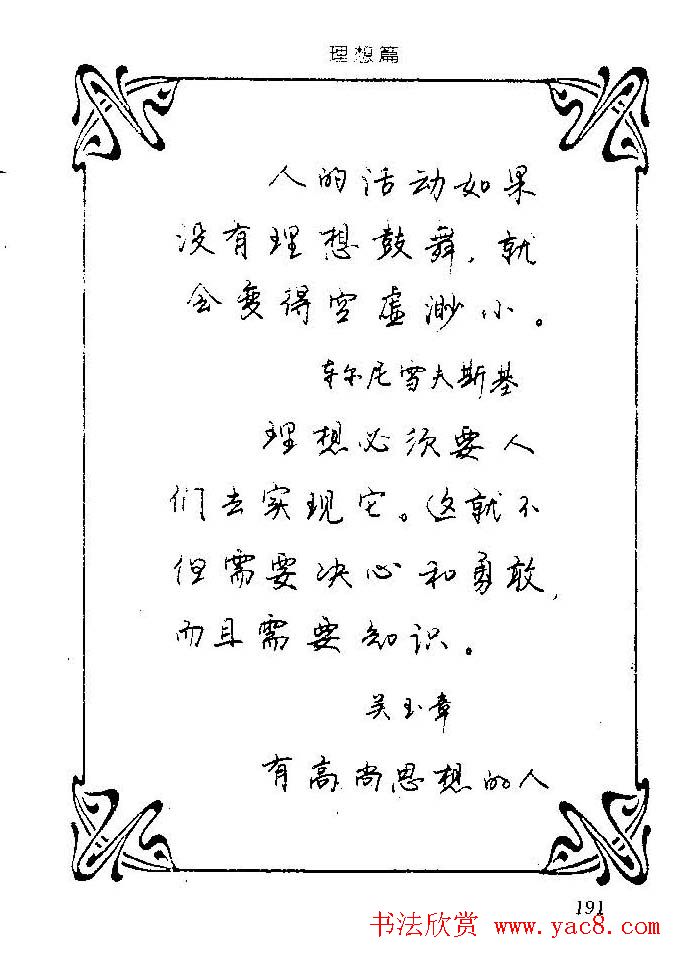 理想篇
人的活动如果
没有理想鼓舞，就
会变得空虚渺小。
车尔尼雪夫斯基
理想必须要人
们去实现它。这就不
但需要决心和勇敢，
而且需要知识。
吴玉章
有高尚思想的人
191
书法欣赏 www.yac8.com